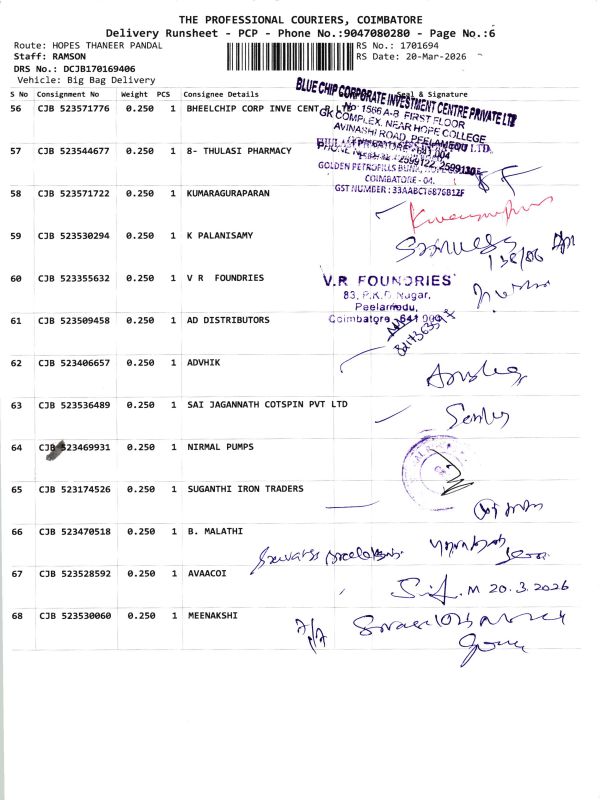 THE PROFESSIONAL COURIERS, COIMBATORE
Delivery Runsheet - PCP - Phone No.:9047080280 - Page No.:6
Route: HOPES THANEER PANDAL RS No.: 1701694
Staff: RAMSON RS Date: 20-Mar-2026
DRS No.: DCJB170169406
Vehicle: Big Bag Delivery
S No Consignment No Weight PCS Consignee Details Seal & Signature
56 CJB 523571776 0.250 1 BHEELCHIP CORP INVE CENT
BLUE CHIP CORPORATE INVESTMENT CENTRE PRIVATE LTD
No: 1566 A-B, FIRST FLOOR
GK COMPLEX, NEAR HOPE COLLEGE
AVINASHI ROAD, PEELAMEDU
57 CJB 523544677 0.250 1 8- THULASI PHARMACY
GOLDEN PETROFILLS BUNK,
COIMBATORE - 04.
GST NUMBER : 33AABCT6876B1ZF
58 CJB 523571722 0.250 1 KUMARAGURAPARAN
59 CJB 523530294 0.250 1 K PALANISAMY
60 CJB 523355632 0.250 1 V R FOUNDRIES
V.R FOUNDRIES
83, P.K.D. Nagar,
Peelamedu,
Coimbatore
61 CJB 523509458 0.250 1 AD DISTRIBUTORS
62 CJB 523406657 0.250 1 ADVHIK
63 CJB 523536489 0.250 1 SAI JAGANNATH COTSPIN PVT LTD
64 CJB 523469931 0.250 1 NIRMAL PUMPS
65 CJB 523174526 0.250 1 SUGANTHI IRON TRADERS
66 CJB 523470518 0.250 1 B. MALATHI
67 CJB 523528592 0.250 1 AVAACOI
20.3.2026
68 CJB 523530060 0.250 1 MEENAKSHI